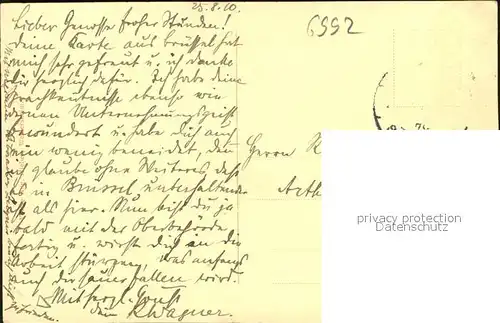 25.8.10.
6992
Lieber Genosse froher Stunden!
deine Karte aus Brüssel hat
mich sehr gefreut u. ich danke
dir herzlich dafür. Ich habe deine
Sprachkentnisse ebenso wie
deinen Unternehmungsgeist
bewundert u. habe dich auch
ein wenig beneidet, denn
ich glaube ohne Weiteres daß
es in Brüssel unterhaltender
ist als hier. Nun bist du ja
bald mit der Oberbehörde
fertig u. wirst dich an die
Arbeit stürzen, was anfangs
auch dir sauer fallen wird.
Mit herzl. Gruß
dein K. Wagner.
Herrn
privacy protection
Datenschutz